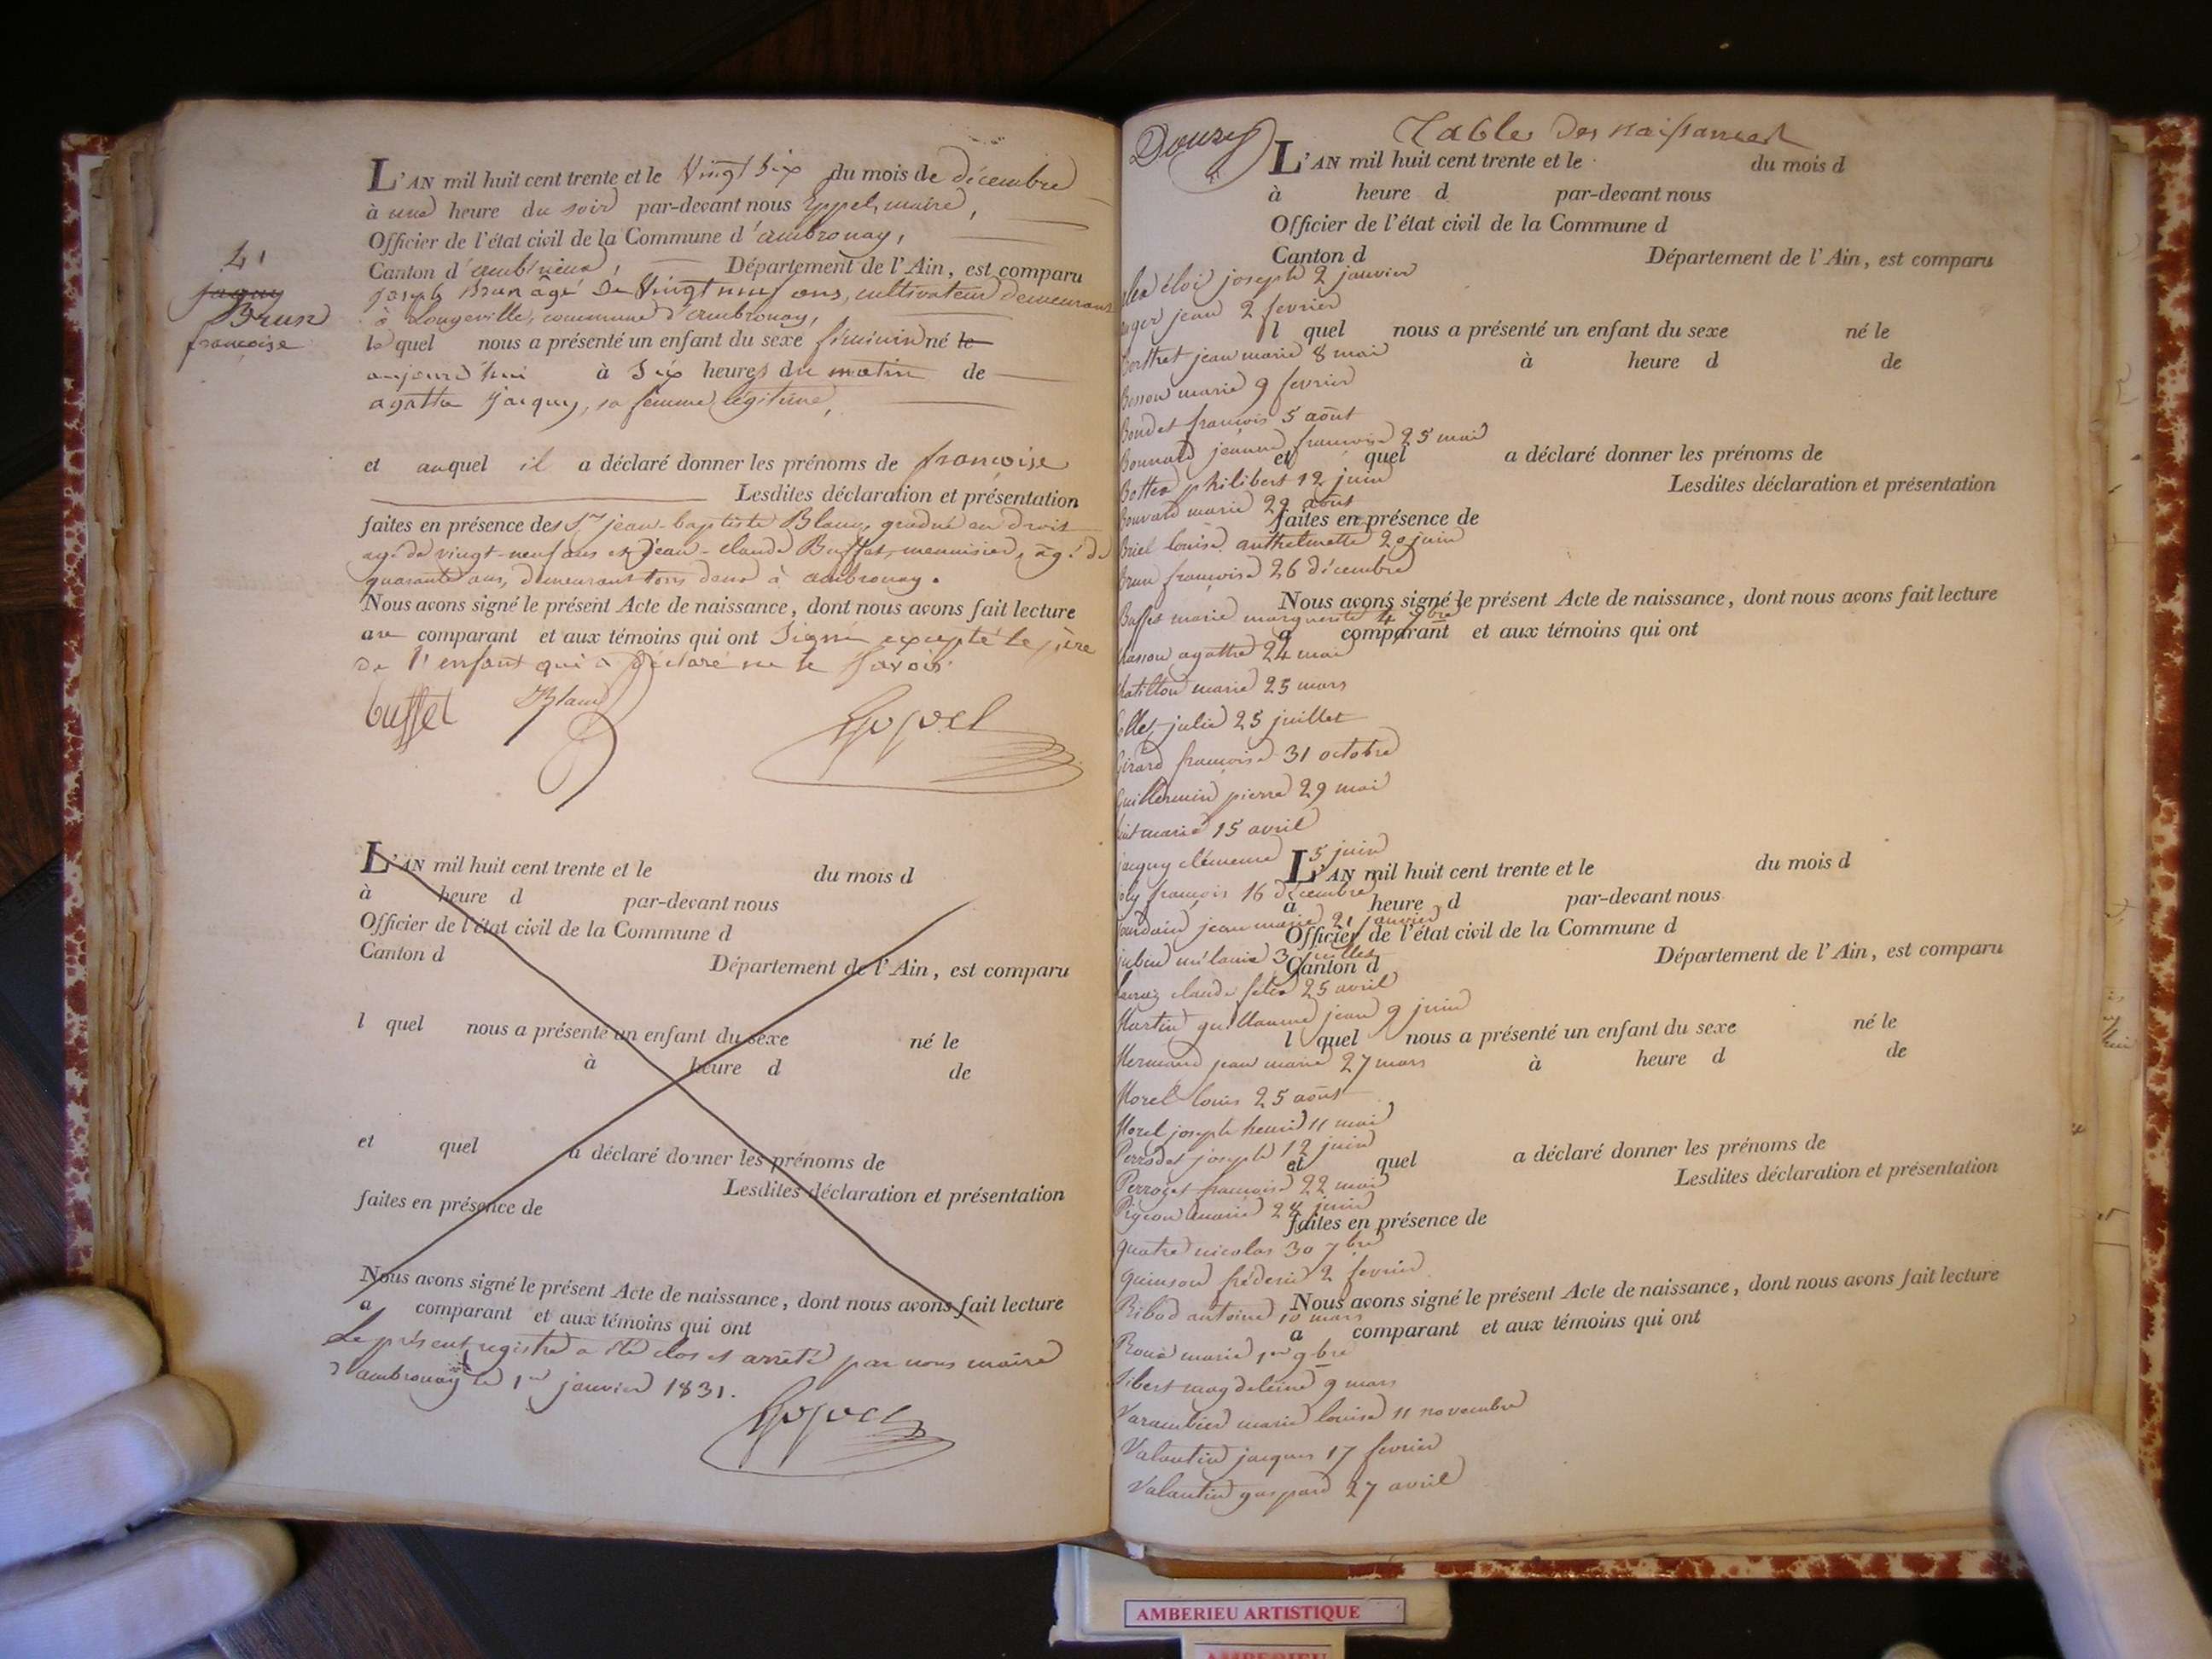 L'AN mil huit cent trente et le Vingt six du mois de décembre
à une heure du soir par-devant nous Eppel, maire,
Officier de l'état civil de la Commune d'ambronay,
Canton d'ambérieux, Département de l'Ain, est comparu
joseph Brun agé de Vingt neuf ans, cultivateur demeurant
à Longeville, commune d'ambronay,
41
jaquy
Brun
françoise
lequel nous a présenté un enfant du sexe féminin né le
aujourd'hui à Six heures du matin de
agathe jacquy, sa femme légitime,
et auquel il a déclaré donner les prénoms de françoise
Lesdites déclaration et présentation
faites en présence des Sr jean-baptiste Blanc, gradué en droit
agé de vingt-neuf ans et jean-claude Buffet, menuisier, agé de
quarante ans, demeurant tous deux à ambronay.
Nous avons signé le présent Acte de naissance, dont nous avons fait lecture
au comparant et aux témoins qui ont Signé excepté le père
de l'enfant qui a déclaré ne le Savoir.
buffet Blanc Eppel
L'AN mil huit cent trente et le du mois d
à heure d par-devant nous
Officier de l'état civil de la Commune d
Canton d Département de l'Ain, est comparu
l quel nous a présenté un enfant du sexe né le
à heure d de
et quel a déclaré donner les prénoms de
Lesdites déclaration et présentation
faites en présence de
Nous avons signé le présent Acte de naissance, dont nous avons fait lecture
a comparant et aux témoins qui ont
Le présent registre a été clos et arrêté par nous maire
d'ambronay le 1er janvier 1831.
Eppel
Douze
Table des naissances
L'AN mil huit cent trente et le du mois d
à heure d par-devant nous
Officier de l'état civil de la Commune d
Canton d Département de l'Ain, est comparu
éloi joseph 2 janvier
jean 2 fevrier
l quel nous a présenté un enfant du sexe né le
Berthet jean marie 8 mai
à heure d de
Besson marie 9 fevrier
Boudet françois 5 août
Bonnard jeanne françoise 25 mai
et quel a déclaré donner les prénoms de
Bottex philibert 12 juin
Lesdites déclaration et présentation
Bouvard marie 29 août
faites en présence de
Briel louise anthelmette 20 juin
Brun françoise 26 décembre
Nous avons signé le présent Acte de naissance, dont nous avons fait lecture
Buffet marie marguerite 4 7bre
a comparant et aux témoins qui ont
agathe 24 mai
marie 25 mars
julie 25 juillet
Girard françoise 31 octobre
Guillermin pierre 29 mai
marie 15 avril
jacquy clémence 5 juin
L'AN mil huit cent trente et le du mois d
joly françois 16 décembre
à heure d par-devant nous
jourdain jean marie 21 janvier
Officier de l'état civil de la Commune d
mélanie 3 juillet
Canton d Département de l'Ain, est comparu
claude félix 25 avril
Martin guillaume jean 9 juin
l quel nous a présenté un enfant du sexe né le
Mermand jean marie 27 mars
à heure d de
Morel louis 25 août
Morel joseph henri 11 mai
Perrodet joseph 12 juin
et quel a déclaré donner les prénoms de
Perrozet françoise 22 mai
Lesdites déclaration et présentation
Pigeon marie 24 juin
faites en présence de
quatre nicolas 30 7bre
quinson fréderic 2 fevrier
Nous avons signé le présent Acte de naissance, dont nous avons fait lecture
Ribod antoine 10 mars
a comparant et aux témoins qui ont
marie 1er 9bre
magdeleine 9 mars
Varambier marie louise 11 novembre
Valantin jacques 17 fevrier
Valantin gaspard 27 avril
AMBERIEU ARTISTIQUE
AMBERIEU